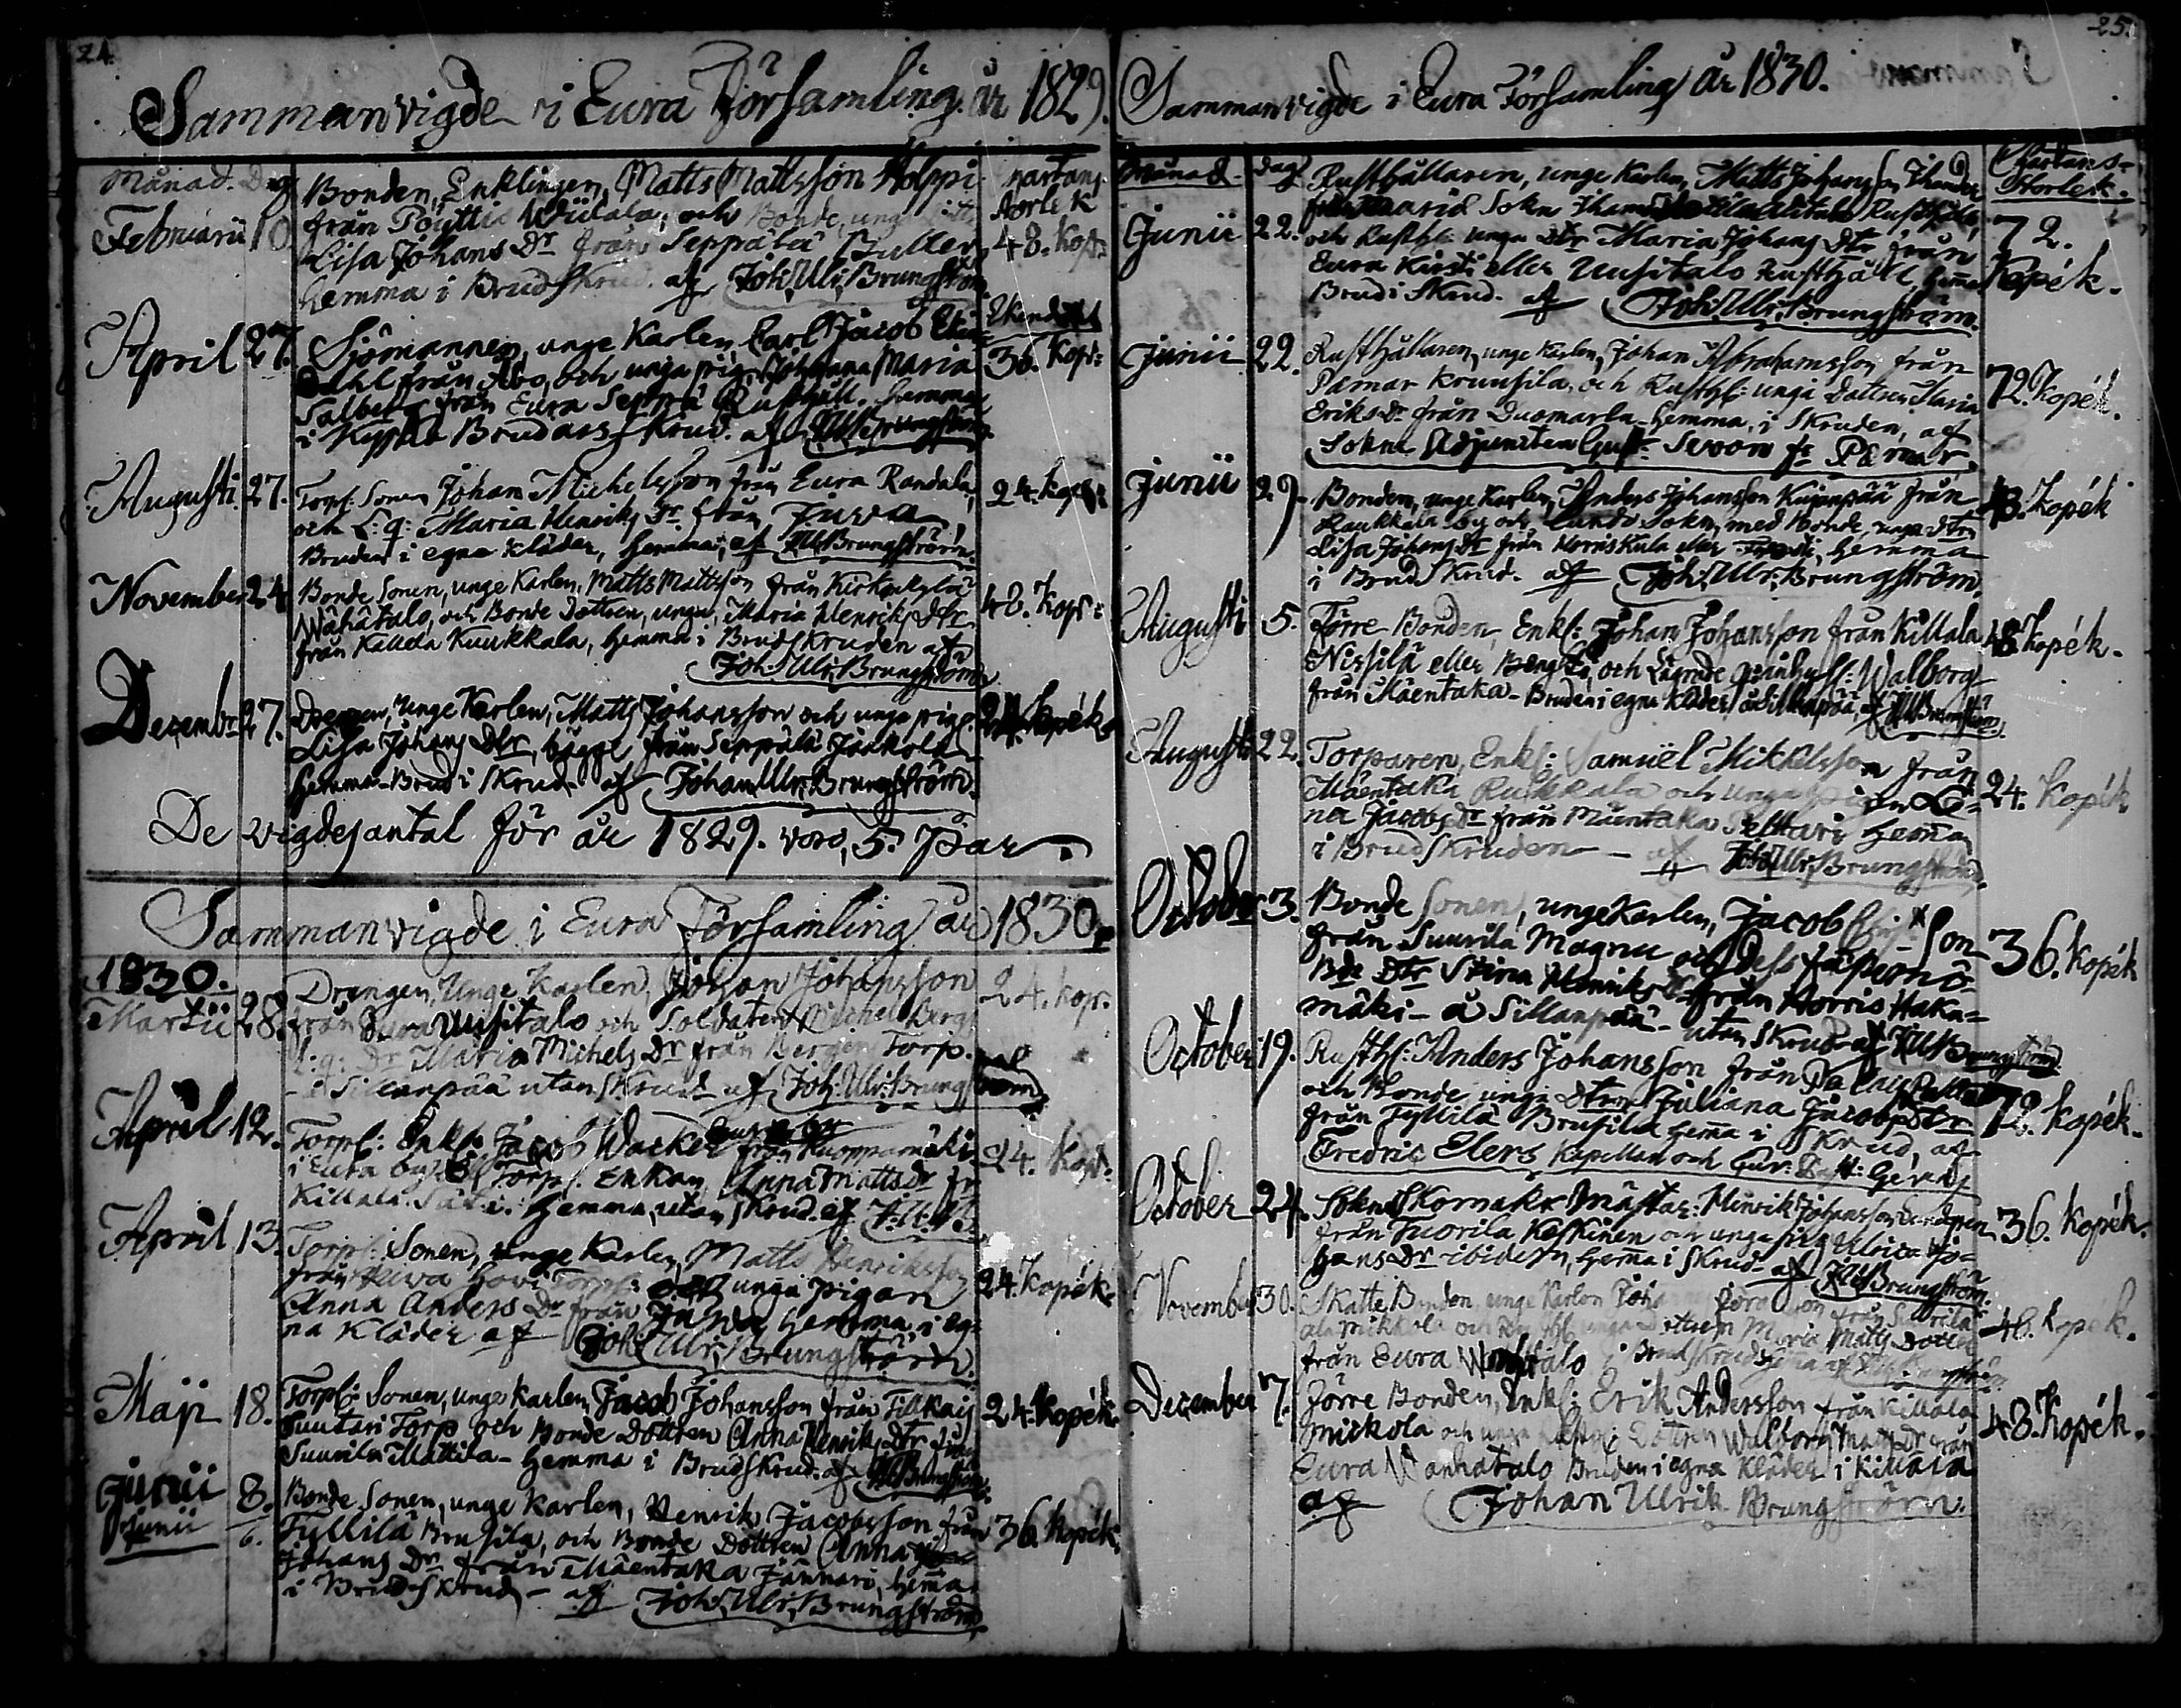 24.
Sammanvigde i Eura Församling år 1829.
Månad. Dag
Qartans Storlek
Februarii 10. Bonden, Enklingen, Matts Mattsson Holppi
från Pöyttis Uutala, och Bonde, unga
Lisa Johans Dr från Seppälä 48. Kop:
hemma i BrudSkrud. af Joh: Ulr: Brungström
April 27. Sjömannen, unge Karlen Carl Jacob 36. Kop:
Dahl från Åbo, och unga pig. Johanna Maria
Salberg från Eura Seppä Rusthåll. hemma
i Brudars Skrud. af JUBrungström
Augusti 27. Torp: Sonen Johan Michelsson från Eura Randala, 24. Kop:
och L: q: Maria Henriks Dr från Juva
Bruden i egna kläder, hemma, af JUBrungström.
November 24. Bonde Sonen, unge Karlen, Matts Mattsson från Kirkonkylä
Wähätalo, och Bonde Dottren, unga, Maria Henriks Dtr 48. Kop:
från Kiuda Kuukkala, hemma i BrudsKruden af
Joh: Ulr: Brungström
Decembr 27. Drengen, unge Karlen, Matts Johansson och unga pig. 24. Kopék.
Lisa Johans Dtr, bägge från Seppälä Jaakola
hemma Brud i Skrud. af Johan Ulr: Brungström.
De vigdes antal för år 1829. voro, 5. Par.
Sammanvigde i Eura Församling år 1830.
1830.
Martii 28. Drengen, Unge Karlen, Johan Johansson 24. Kop.
från Eura Uusitalo och Soldaten Michel Bergs
l: q: Dr Maria Michels Dr från Bergens Torp.
å Sillanpää utan Skrud af Joh: Ulr: Brungström
April 12. Torp: Enkl: Jacob Wacker från Kuoppamäki 24. Kop.
i Eura by, Torp: Enkan Anna Matts Dr fr
Kiuala hemma, utan Skrud. af J: U: B:
April 13. Torp: Sonen, unge Karlen, Matts Henriksson 24. Kopék.
från unga pigan
Anna Anders Dr från Juva hemma, i eg=
na Kläder af Joh: Ulr: Brungström.
Maji 18. Torp: Sonen, unge Karlen, Jacob Johansson från 24. Kopék.
Suutari Torp och Bonde Dottren Anna Henriks Dtr från
Suurila Mattila hemma i BrudsKrud. af JUBrungström.
Junii 8. Bonde Sonen, unge Karlen, Henrik Jacobsson från 36. Kopék.
Junii 6. Tyllilä Brusila, och Bonde Dottren Anna
Johans Dr från Mäentaka Jännäri, hema
i BrudsKrud, af Joh: Ulr: Brungström
25.
Sammanvigde i Eura Församling år 1830.
Månad. Dag Qvartans- Storlek.
Junii 22. Rusthållaren, unge Karlen, Matts Johansson 72. Kopék.
Sokn Rusthåll,
och Rusth: unga dtr Maria Johans Dtr från
Eura Kirsti eller Uusitalo Rusthåll, hemma
Brud i Skrud. af Joh: Ulr: Brungström.
Junii 22. Rusthållaren, unge Karlen, Johan Abrahamsson från 72. Kopék.
Pämar Kruusila, och Rusth: unga Dottren Maria
Eriks Dr från hemma, i Skruden, af
Sokne Adjuncten Gust: fr Pämar.
Junii 29. Bonden, unge Karlen, Anders Johansson Kujanpää från 48. Kopék
Raukkala by och Lundo Sokn, med Bonde, unga dtrn
Lisa Johans Dr från Horriskula eller hemma
i BrudSkrud. af Joh: Ulr: Brungström.
Augusti 5. Förre Bonden, Enkl: Johan Johansson från Kiuala 48. Kopék.
Nissilä eller och Lägrade Walborg
från Mäentaka. Bruden i egna Kläder, å Sillanpää, af JUBrungström.
Augusti 22. Torparen, Enkl: Samuel Mikelsson från 24. Kopék
Mäentaka Raikkala och unga pigan Le=
na Jacobs Dr från Mäentaka hema
i BrudSkruden af Joh: Ulr: Brungström.
October 3. Bonde Sonen, unge Karlen, Jacob Son 36. Kopék
från Suurila Magnu och
Bde Dtr Stina Henriks Dr från Horris Haka=
mäki å Sillanpää utan Skrud af JUBrungström
October 19. Rusthl: Anders Johansson från 72. Kopék.
och Bonde unga Dtren Juliana Jacobs Dtr
från Tyllilä Brusila hema i Skrud, af
Fredric Elers Kapellan och
October 24. Sokne Skomakr Mästar: Hinrik Johansson 36. Kopék.
från Tuorila Keskinen och unga pig: Ulrica Jo=
hans Dr ibidem, hema i Skrud af JUBrungström.
November 30. Skatte Bonden, unge Karlen Johan från Suurila 48. Kopék.
unga Dottren Maria Matts Dotter
från Eura Wanhatalo i BrudSkrud hema af
December 7. Förre Bonden, Enkl: Erik Andersson från Kiuala 48. Kopék.
Mickola och unga Dottren Walborg Matts Dr från
Eura Wanhatalo Bruden i egna Kläder i Kiuala
af Johan Ulrik Brungström.